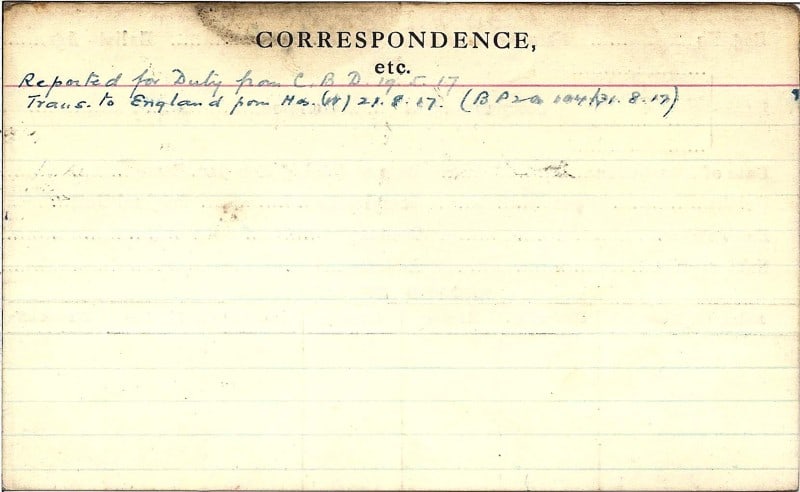 CORRESPONDENCE,
etc.
Reported for Duty from C. B D. 19. 5. 17
Trans. to England from Hos. (W) 21. 8. 17. (B P2a 104/31. 8. 17)